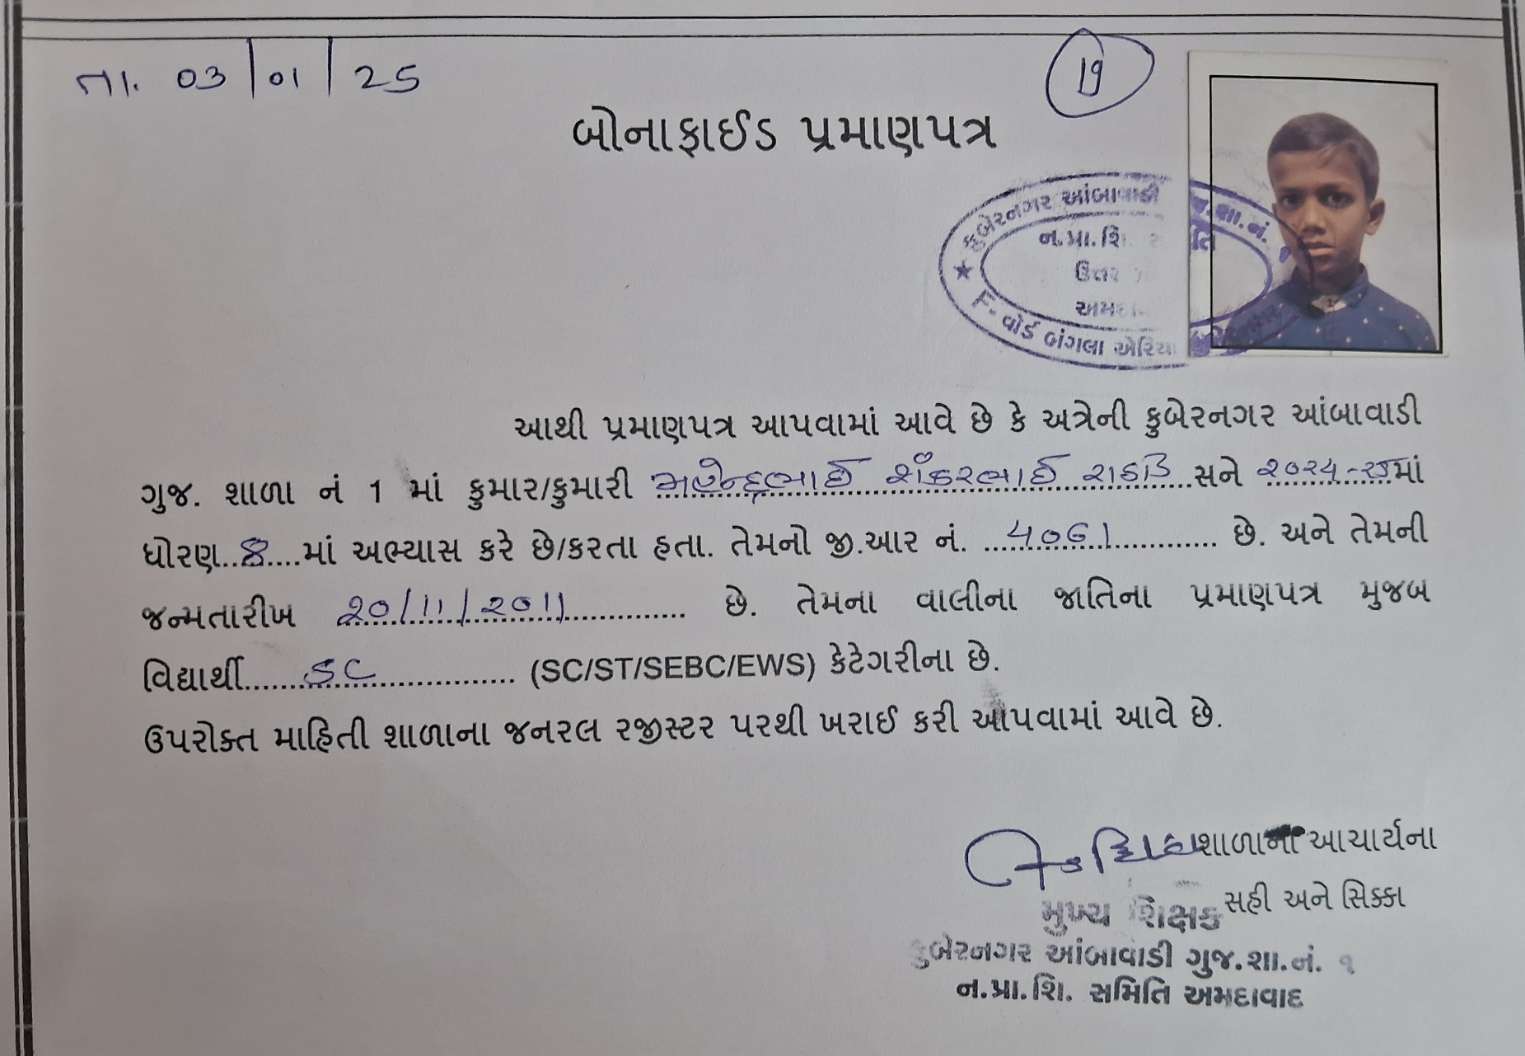 તા. 03/01/25
19
બોનાફાઈડ પ્રમાણપત્ર
કુબેરનગર આંબાવાડી
.શા.નં.
ન.પ્રા.શિ.
તિ
ઉત્તર
F- વોર્ડ બંગલા એરિયા
આથી પ્રમાણપત્ર આપવામાં આવે છે કે અત્રેની કુબેરનગર આંબાવાડી
ગુજ. શાળા નં 1 માં કુમાર/કુમારી મહેન્દ્રભાઈ શંકરભાઈ રાઠોડ સને ૨૦૨૪-૨૫માં
ધોરણ..8....માં અભ્યાસ કરે છે/કરતા હતા. તેમનો જી.આર નં. ...૫૦૬૧............ છે. અને તેમની
જન્મતારીખ ૨૦/૧૧/૨૦૧૧............ છે. તેમના વાલીના જાતિના પ્રમાણપત્ર મુજબ
વિદ્યાર્થી......SC............... (SC/ST/SEBC/EWS) કેટેગરીના છે.
ઉપરોક્ત માહિતી શાળાના જનરલ રજીસ્ટર પરથી ખરાઈ કરી આપવામાં આવે છે.
શાળાના આચાર્યના
સહી અને સિક્કા
મુખ્ય શિક્ષક
કુબેરનગર આંબાવાડી ગુજ.શા.નં. ૧
ન.પ્રા.શિ. સમિતિ અમદાવાદ